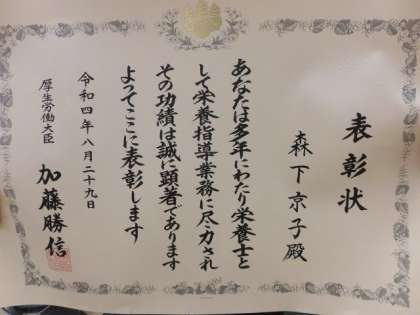 表彰状
森下京子殿
あなたは多年にわたり栄養士と
して栄養指導業務に尽力され
その功績は誠に顕著であります
よってここに表彰します
令和四年八月二十九日
厚生労働大臣
加藤勝信